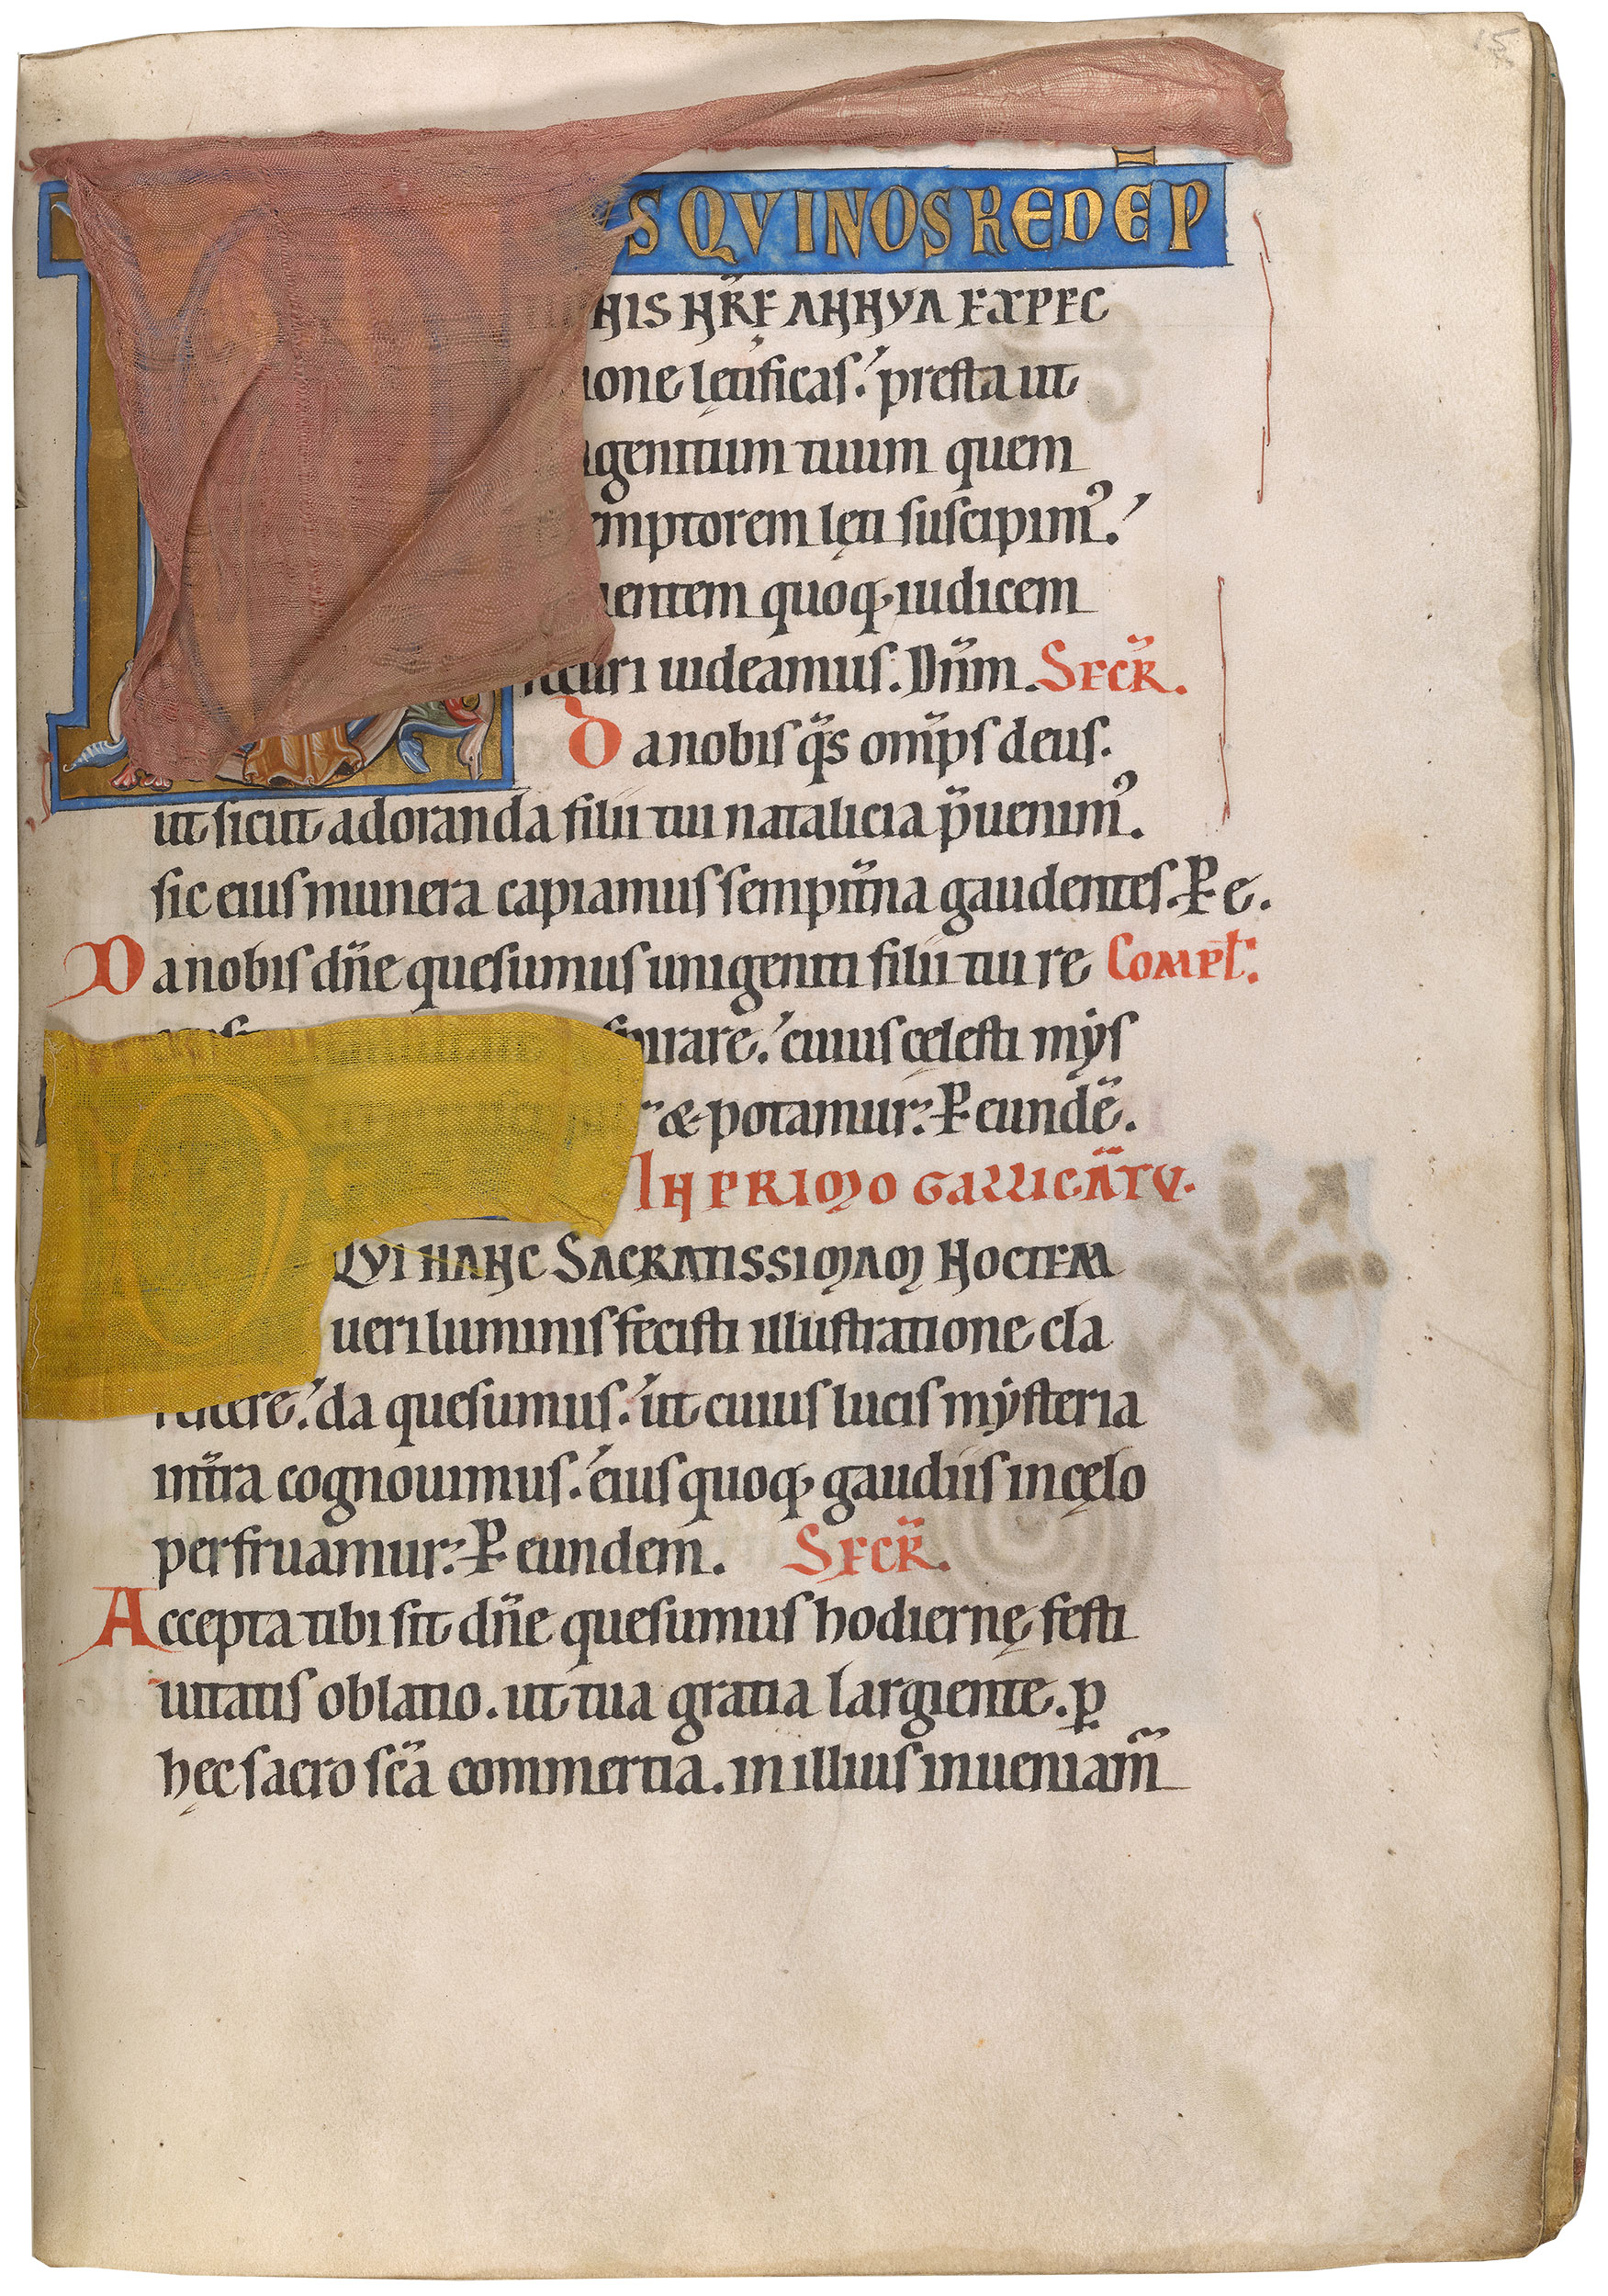 15
S QVI NOS REDĒP
NIS NR̄E ANNVA EXPEC
ione lętificas. presta ut
genitum tuum quem
mptorem lęti suscipim᾿.
uentem quoq; iudicem
securi uideamus. Dn̄m. SECR̄.
Da nobis q̄s om̄ps deus.
ut sicut adoranda filii tui natalicia p̄uenim᾿.
sic eius munera capiamus sempit̄na gaudentes. P e.
Da nobis dn̄e quesumus unigeniti filii tui re COMPL̄:
uare. cuius cęlesti mẏs
& potamur: P eundē.
IN PRIMO GALLICĀTV.
QVI HANC SACRATISSIMAM NOCTEM
ueri luminis fecisti illustratione cla
da quesumus. ut cuius lucis mẏsteria
int̄ra cognouimus. eius quoq; gaudiis in cęlo
perfruamur: P eundem. SECR̄.
Accepta tibi sit dn̄e quesumus hodiernę festi
uitatis oblatio. ut tua gratia largiente. ꝑ
hęc sacro sc̄a commertia. in illius inueniam̄